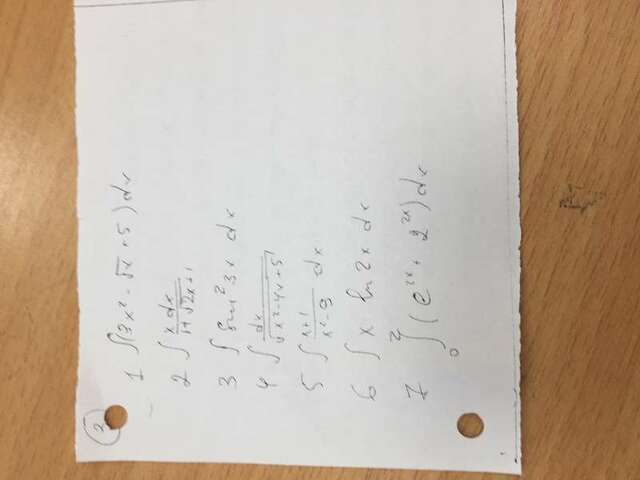 2
1 ∫(3x² - √x + 5)dx
2 ∫ x dx / (1+√(2x+1))
3 ∫ sin² 3x dx
4 ∫ dx / √(x²-4x+5)
5 ∫ (x+1)/(x²-9) dx
6 ∫ x ln 2x dx
7 ∫₀² (e²ˣ + 2²ˣ)dx